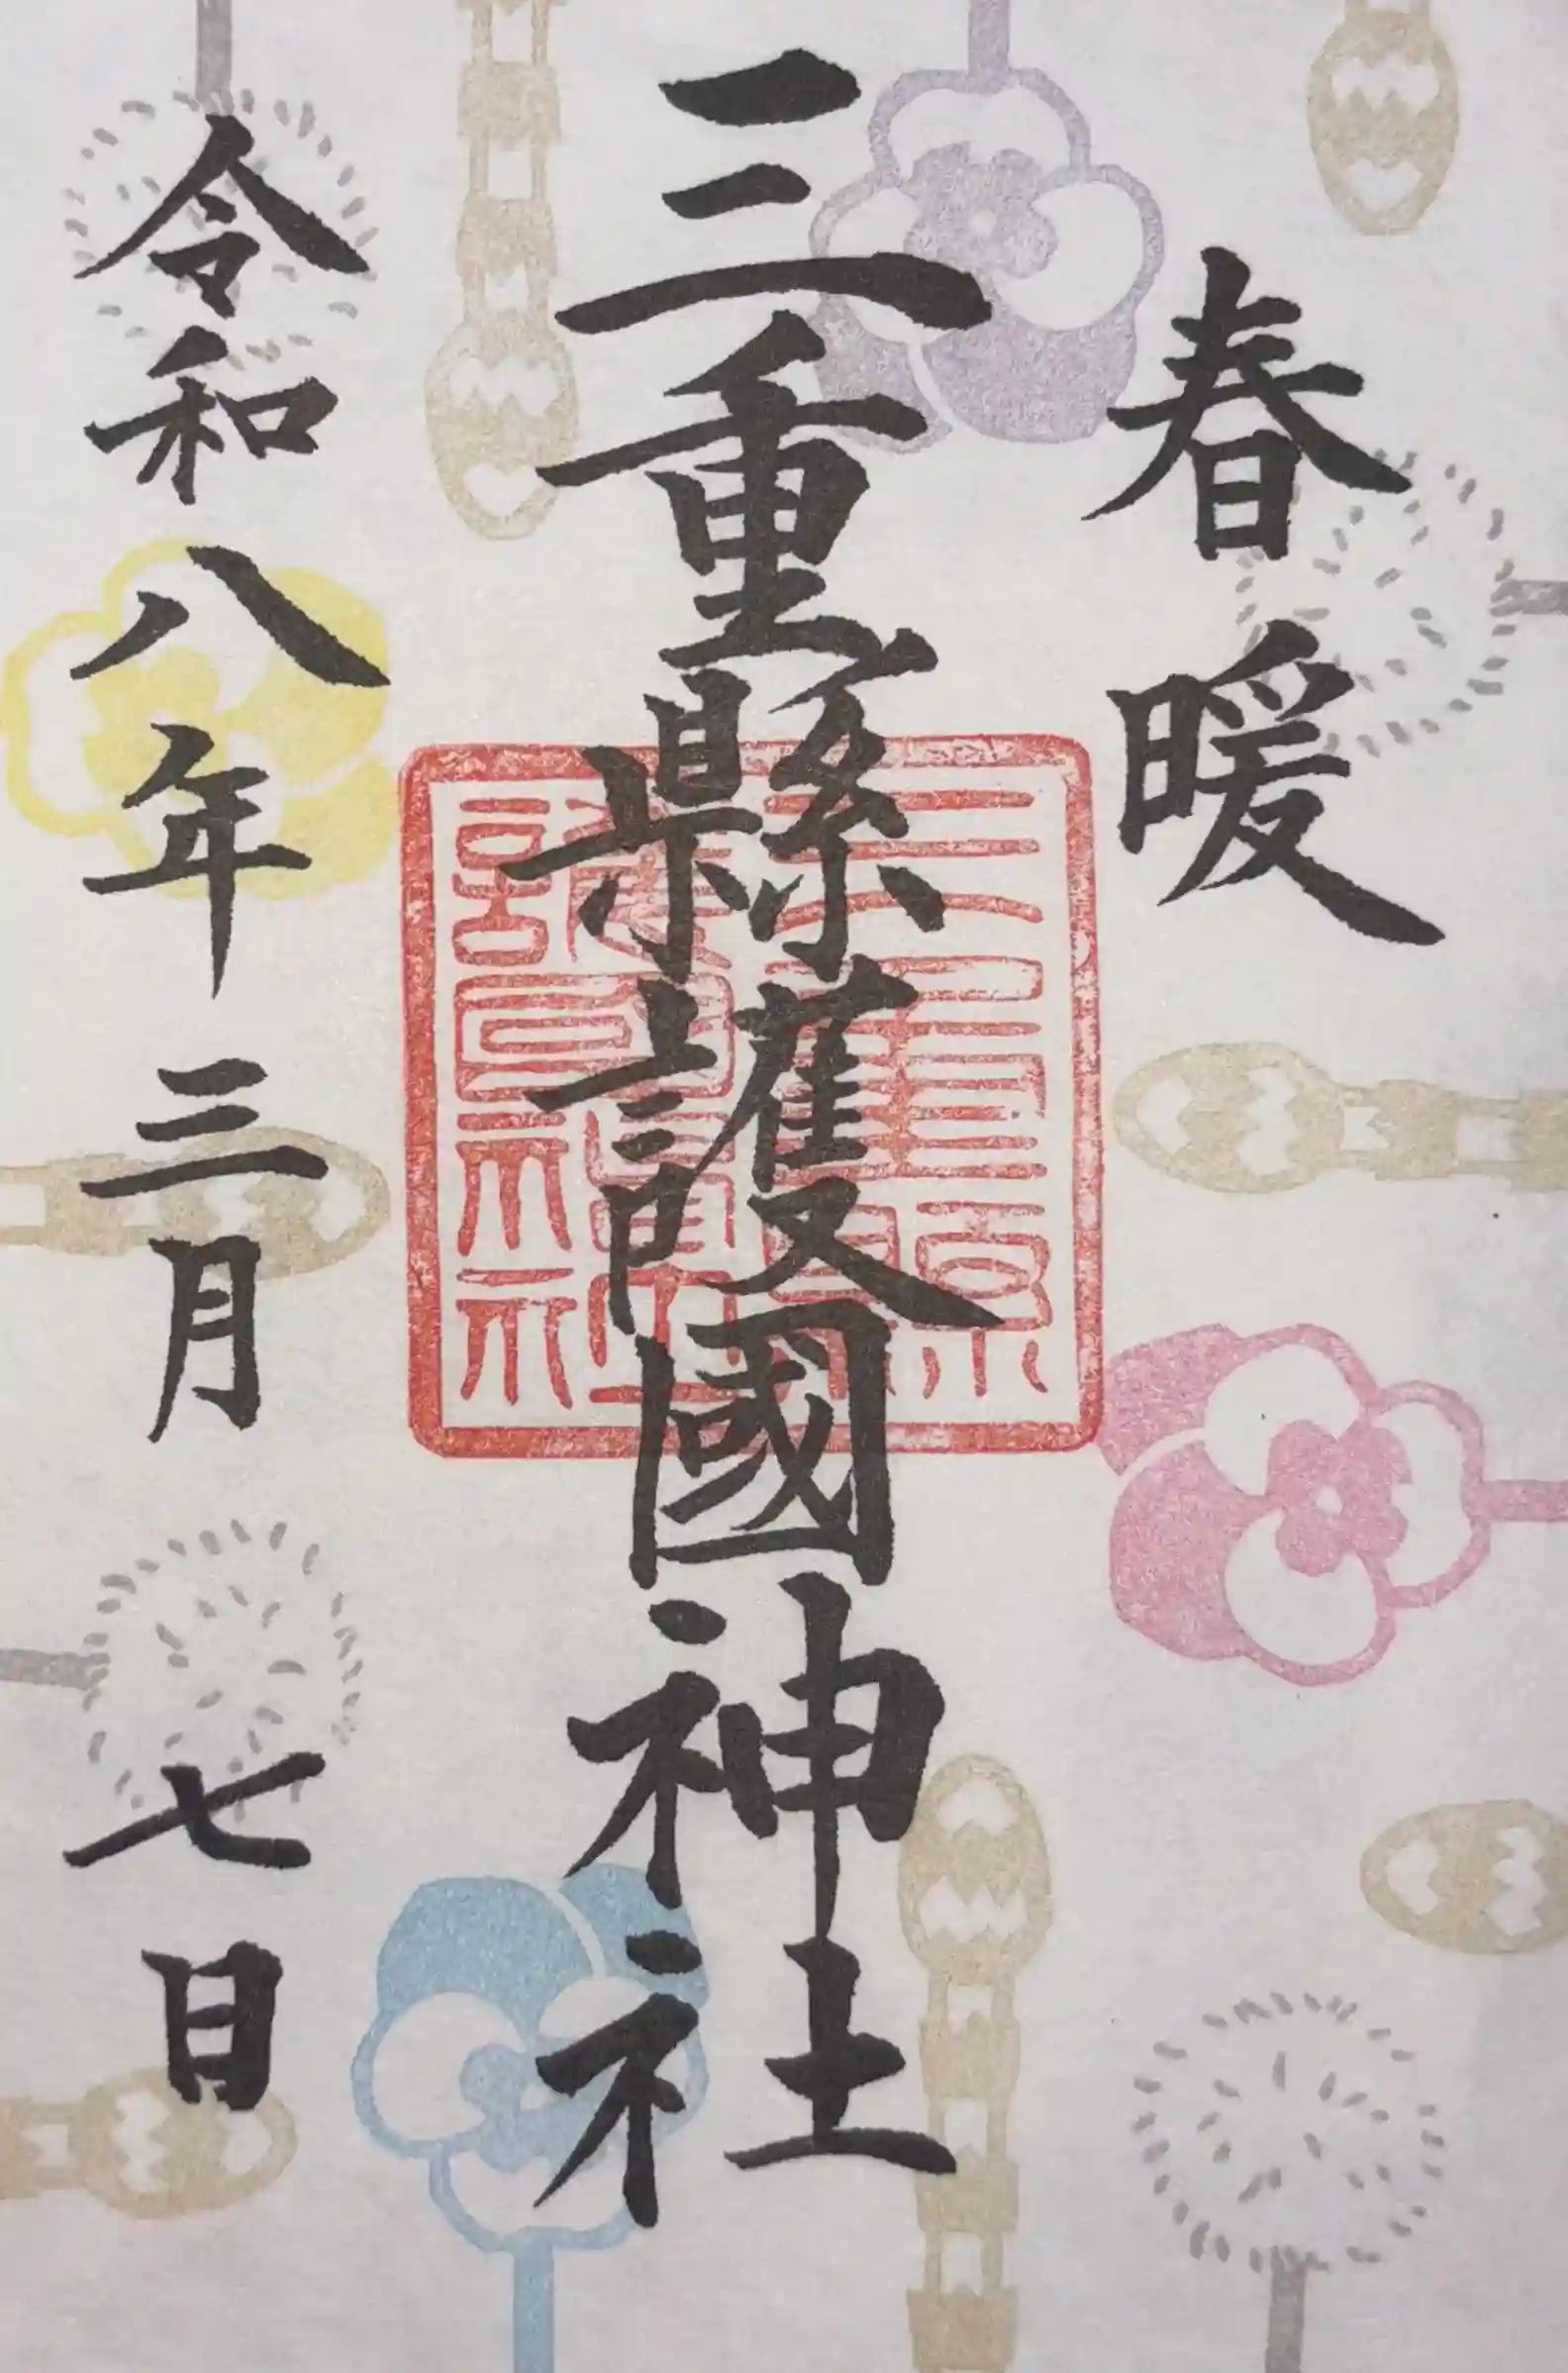 春暖
三重縣護國神社
三重縣
護國神社
令和八年三月七日